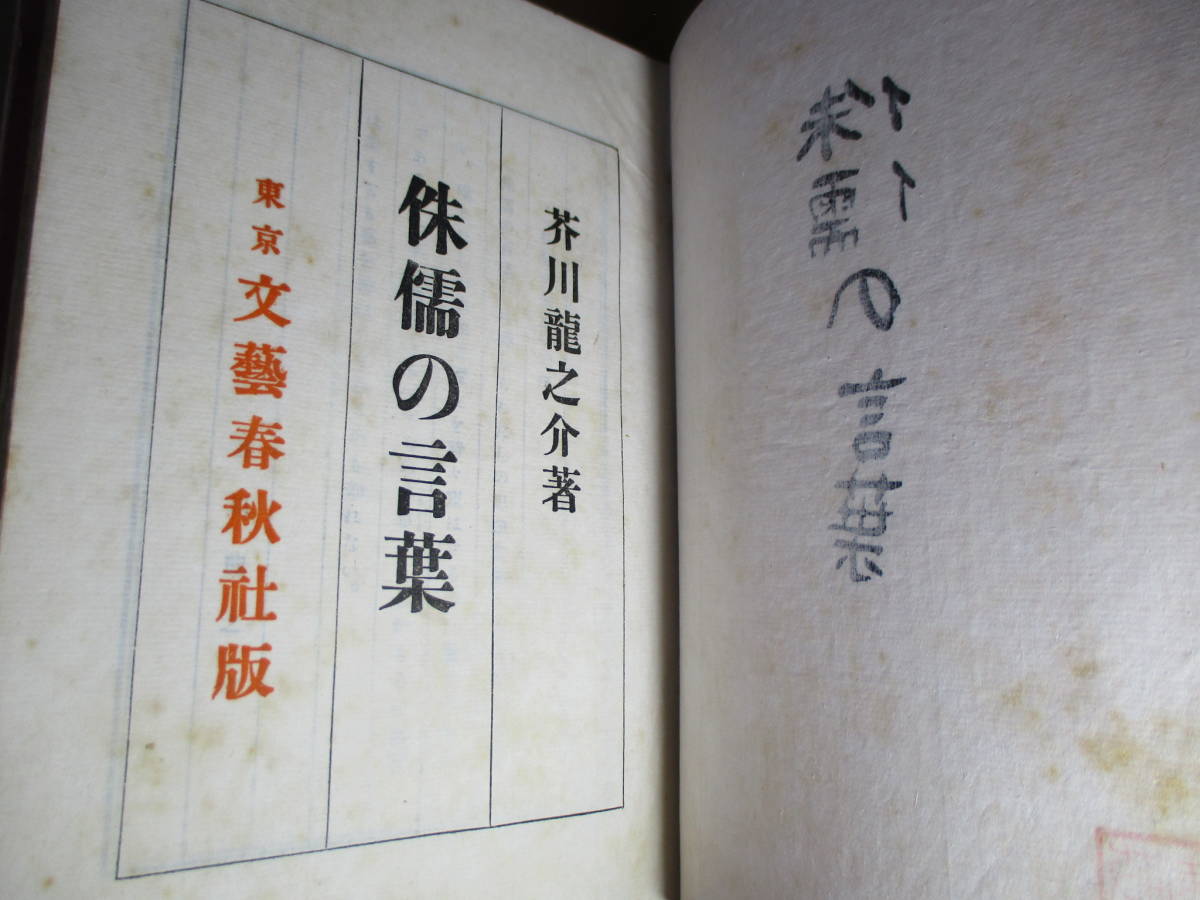 侏儒の言葉
芥川龍之介著
侏儒の言葉
東京 文藝春秋社版